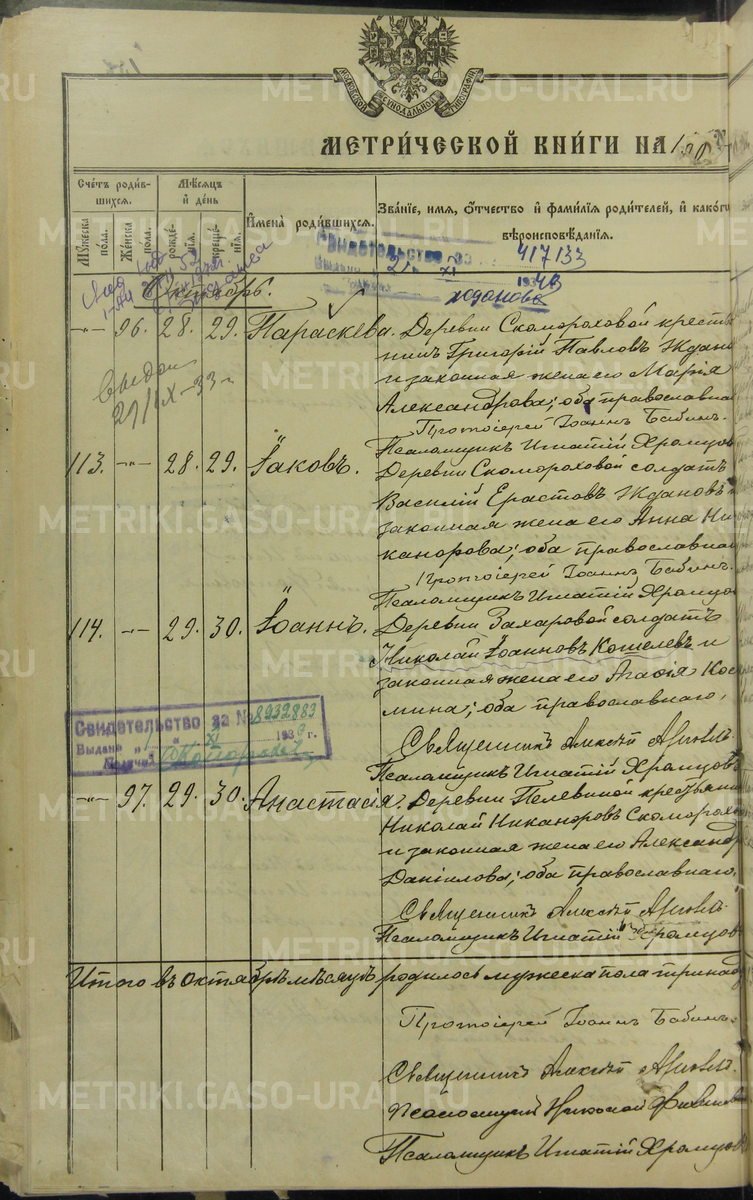 МОСКОВСКОЙ СИНОДАЛЬНОЙ ТИПОГРАФІИ
МЕТРИЧЕСКОЙ КНИГИ НА 190
Счетъ родив-
шихся.
Мѣсяцъ
и день
Мужеска пола.
Женска пола.
рожде-
нія.
креще-
нія.
Имена родившихся.
Званіе, имя, отчество и фамилія родителей, и какого
вѣроисповѣданія.
Свидетельство за 417133
Октябрь.
-"- 96. 28. 29. Параскева. Деревни Скомороховой кресть
нинъ Григорій Павловъ Ждано
и законная жена его Марія
Александрова; оба православна
Протоіерей Іоаннъ Бабинъ.
Псаломщикъ Игнатій Храмцов
Выдан
29/IX-33 г
113. -"- 28. 29. Іаковъ. Деревни Скомороховой солдатъ
Василій Ерастовъ Ждановъ и
законная жена его Анна Ни
канорова; оба православна
Протоіерей Іоаннъ Бабинъ.
Псаломщикъ Игнатій Храмцов
114. -"- 29. 30. Іоаннъ. Деревни Захаровой солдатъ
Николай Іоанновъ Кошелевъ и
законная жена его Агафія Кос
мина; оба православнаго,
Священникъ Алексѣй
Псаломщикъ Игнатій Храмцовъ
Свидетельство за № 8932883
Выдано XI 193
-"- 97. 29. 30. Анастасія. Деревни Пелевиной крестьянин
Николай Никаноровъ Скоморохо
и законная жена его Александр
Даніилова; оба православнаго.
Священникъ Алексѣй
Псаломщикъ Игнатій Храмцов
Итого въ октябрѣ мѣсяцѣ родилось мужеска пола тринад
Протоіерей Іоаннъ Бабинъ.
Священникъ Алексѣй
Николай
Псаломщикъ Игнатій Храмцов
METRIKI.GASO-URAL.RU